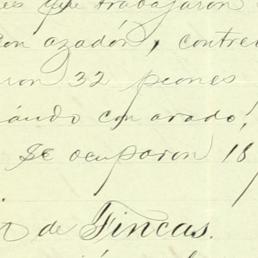 es que trabajaron
con azadón, contre
ron 32 peones
ando con arado,
se ocuparon 18
de Fincas.